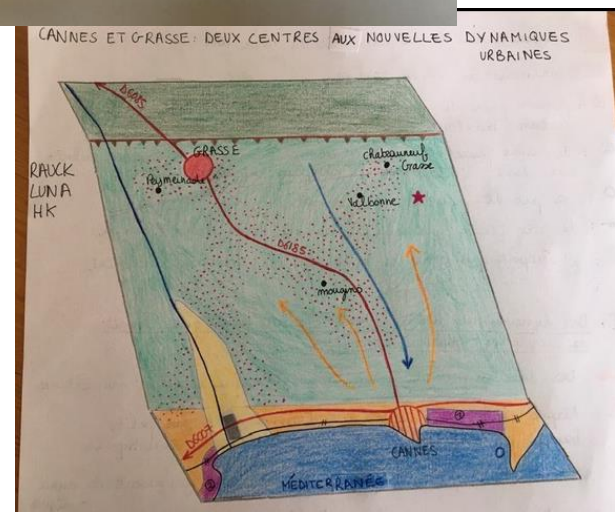 CANNES ET GRASSE: DEUX CENTRES AUX NOUVELLES DYNAMIQUES
URBAINES
RAUCK
LUNA
HK
D6085
GRASSE
Peymeinade
Chateauneuf
Grasse
Valbonne
D6185
mougins
D6007
CANNES
MÉDITERRANÉE